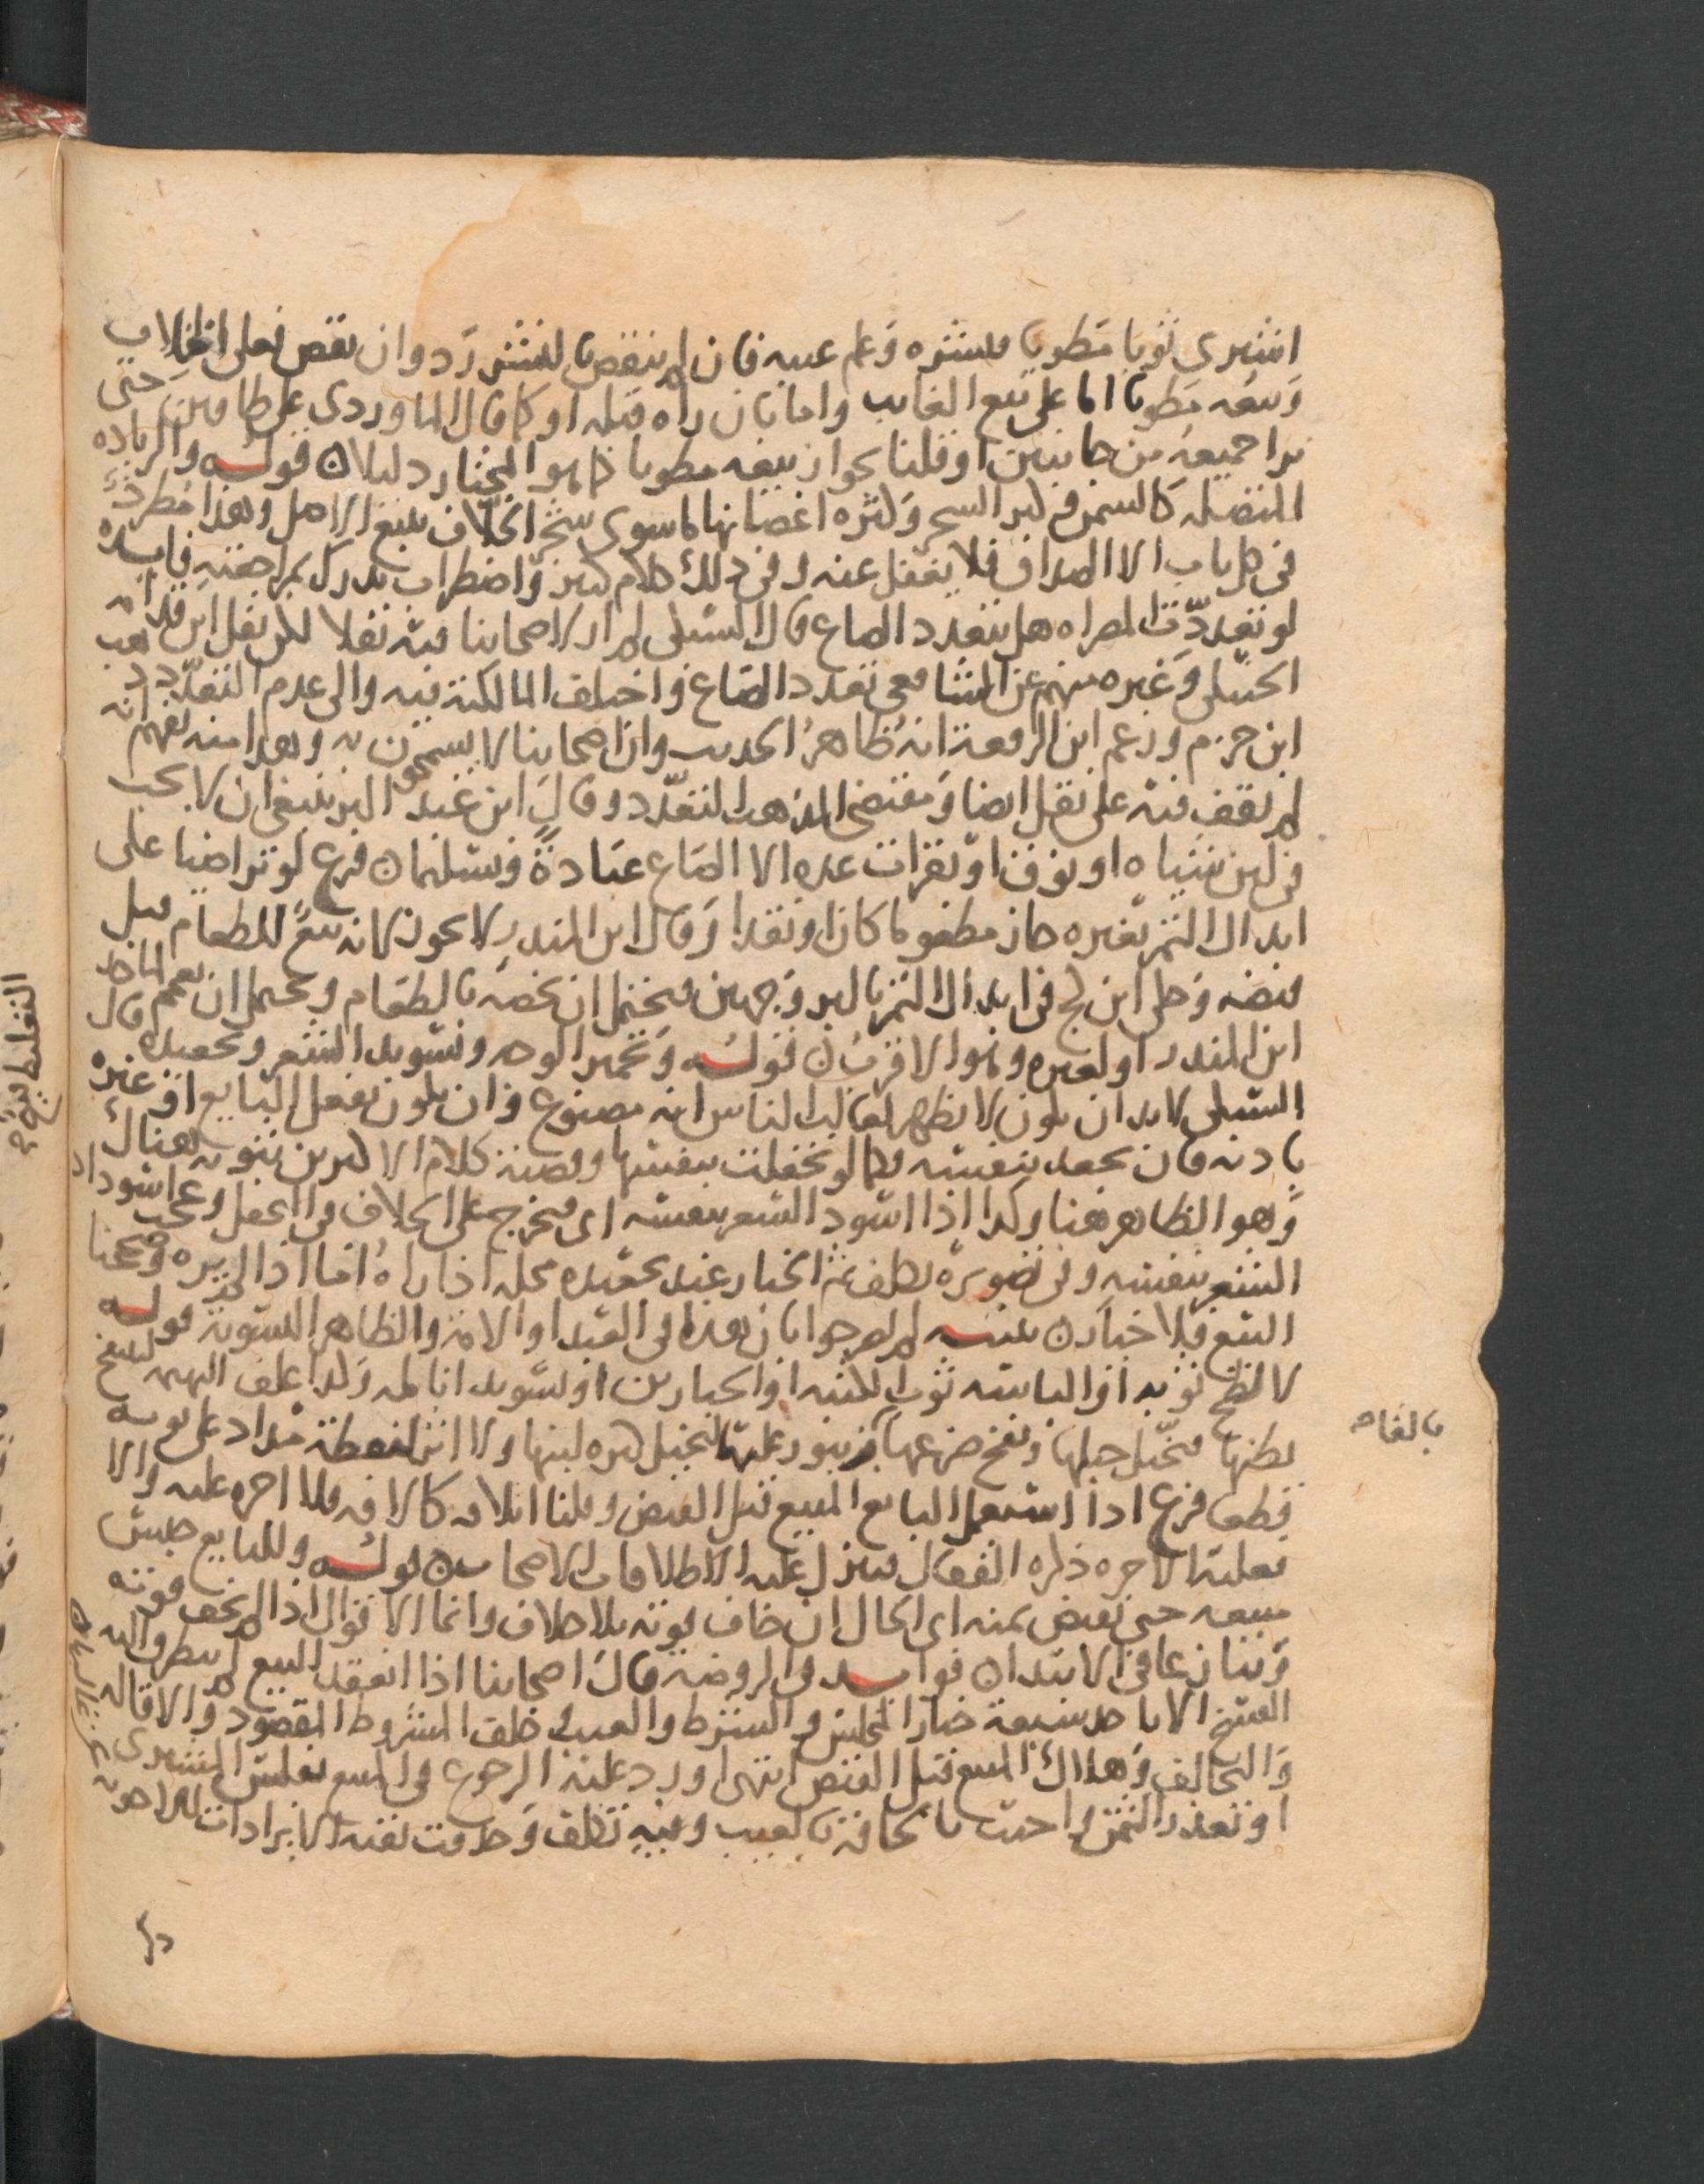 اشترى ثوبا مطويا فنشره وعلم عيبه فان لم ينقص بالنشر رد وان نقص فعلى الخلاف
وبيعه مطويا اما على بيع الغايب واما بان راه قبله او كما قال الماوردي على طاقين حتى
يرا جميعه من جانبين او قلنا بجواز بيعه مطويا كما هو المختار دليلا قوله والزياده
المتصله كالسمن وكبر الشجر وكثره اغصانها ما سوى شجر الخلاف يتبع الاصل وهذا مطرد
في كل باب الا الصداق فلا يغفل عنه وفي ذلك كلام كثير واضطراب يدرك بمراجعته فايده
لو تعددت المصراه هل يتعدد الصاع قال السبكي لم ار لاصحابنا فيه نقلا لكن نقل ابن قدامه
الحنبلي وغيره منهم عن الشافعي تعدد الصاع واختلف المالكية فيه والى عدم التعدد ذهب
ابن حزم وزعم ابن الرفعة انه ظاهر الحديث وان اصحابنا لا يسمحون به وهذا منه يفهم انه
لم يقف فيه على نقل ايضا ومقتضى المذهب التعدد وقال ابن عبد البر ينبغي ان لا يجب
في لبن شياه او نوق او بقرات عده الا الصاع عبادة وتسليما فرع لو تراضيا على
ابدال التمر بغيره جاز مطعوما كان او نقدا وقال ابن المنذر لا يجوز لانه بيع للطعام قبل
قبضه وحكى ابن كج في ابدال التمر بالبر وجهين فيحتمل ان يخصه بالطعام ويحتمل ان يعمم لماخذ
ابن المنذر او لغيره وهو الاقرب قوله وتحمير الوجه وتسويد الشعر وتجعيده قال
السبكي لابد ان يكون لا يظهر لغالب الناس انه مصنوع وان يكون بفعل البايع او غيره
باذنه فان تجعد بنفسه فكما لو تحفلت بنفسها وقضية كلام الاكثرين ثبوته هناك
وهو الظاهر هنا وكذا اذا اسود الشعر بنفسه اي فيخرج على الخلاف في التحفل وعجب اسوداد
الشعر بنفسه وفي تصويره تكلف ثم الخيار عند تجعيده محله اذا راه اما اذا لم يره وصححنا
البيع فلا خيار تنبيه لم يصرحوا بان هذا في العبد او الامة والظاهر التسوية قوله
لا لطخ ثوبه او الباسه ثوب الكتبه او الخبازين او تسويد انامله وكذا علف البهيمه لينتفخ
بطنها فيخيل حبلها ونفخ ضرعها بزنبور عليها ليخيل كثره لبنها ولا اثر لنقطة مداد على ثوبه
قطعا فرع اذا استعمل البايع المبيع قبل القبض وقلنا اتلافه كالافه فلا اجره عليه والا
فعليه الاجره ذكره القفال فينزل عليه اطلاقات الاصحاب قوله وللبايع حبس
مبيعه حتى يقبض ثمنه اي الحال ان خاف فوته بلا خلاف وانما الاقوال اذا لم يخف فوته
وتنازعا في الابتدا فوايد في الروضة قال اصحابنا اذا انعقد البيع لم يتطرق اليه
الفسخ الا باحد سبعة خيار المجلس والشرط والعيب وخلف المشروط المقصود والاقاله
والتحالف وهلاك المبيع قبل القبض انتهى اورد عليه الرجوع في المبيع بفلس المشتري
او تعذر الثمن واجيب بالحاقه بالعيب وفيه تكلف وخلافه بقية الايرادات
بالقاف